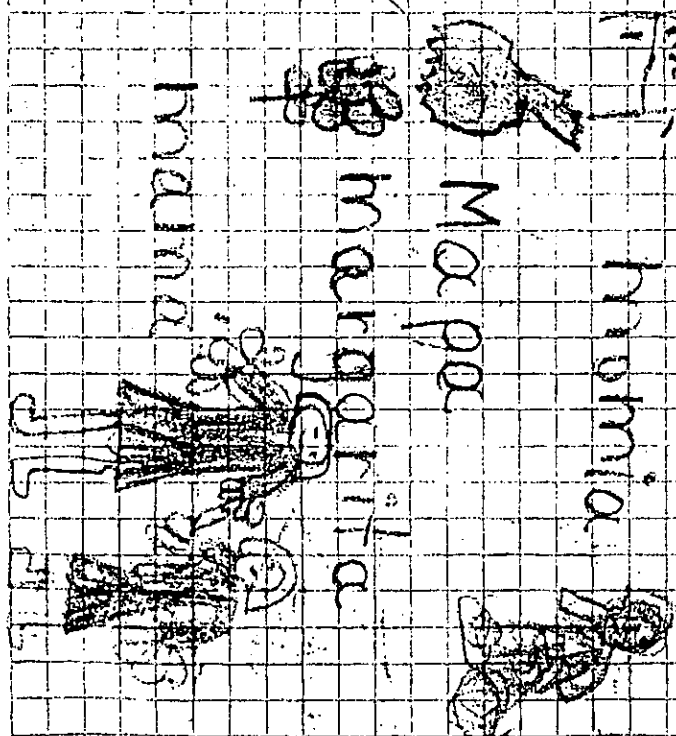 momia
Mapa
margarita
mama